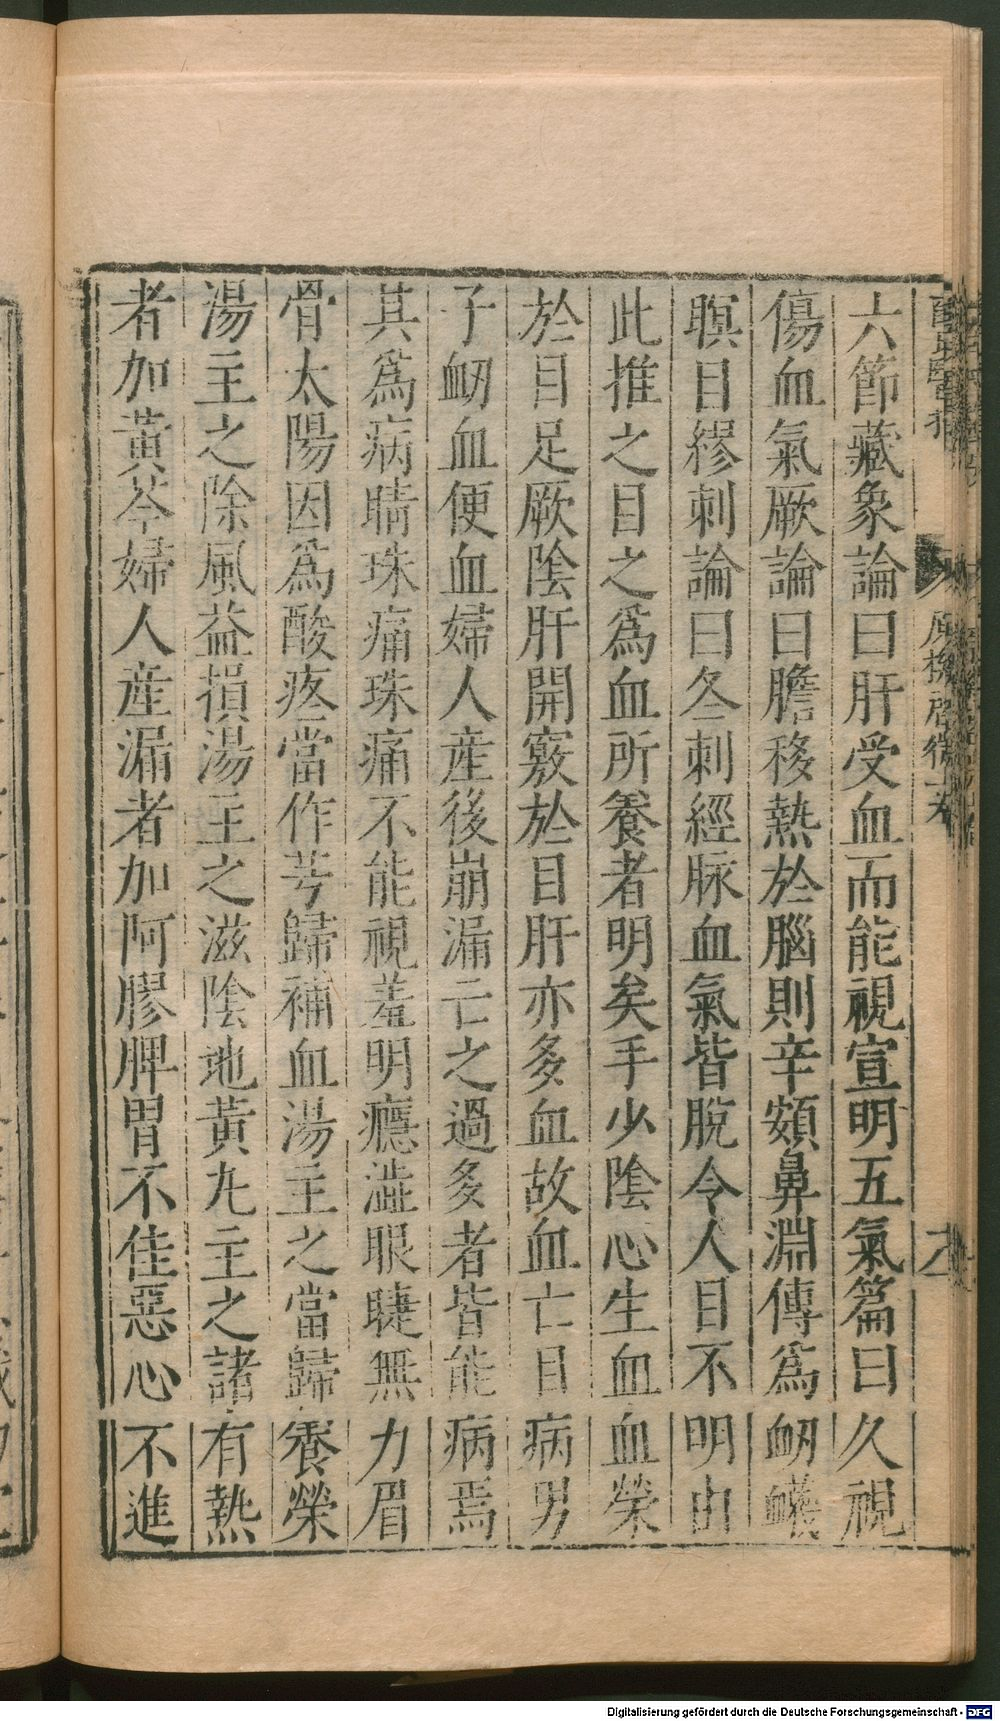 六節藏象論曰肝受血而能視宣明五氣篇曰久視
傷血氣厥論曰膽移熱於腦則辛頞鼻淵傳爲衂衊
瞑目繆刺論曰冬刺經脉血氣皆脫令人目不明由
此推之目之爲血所養者明矣手少陰心生血血榮
於目足厥陰肝開竅於目肝亦多血故血亡目病男
子衂血便血婦人産後崩漏亡之過多者皆能病焉
其爲病睛珠痛珠痛不能視羞明癮澁眼睫無力眉
骨太陽因爲酸疼當作芎歸補血湯主之當歸養榮
湯主之除風益損湯主之滋陰地黃九主之諸有熱
者加黃芩婦人産漏者加阿膠脾胃不佳惡心不進
原機啓微
Digitalisierung gefördert durch die Deutsche Forschungsgemeinschaft - DFG